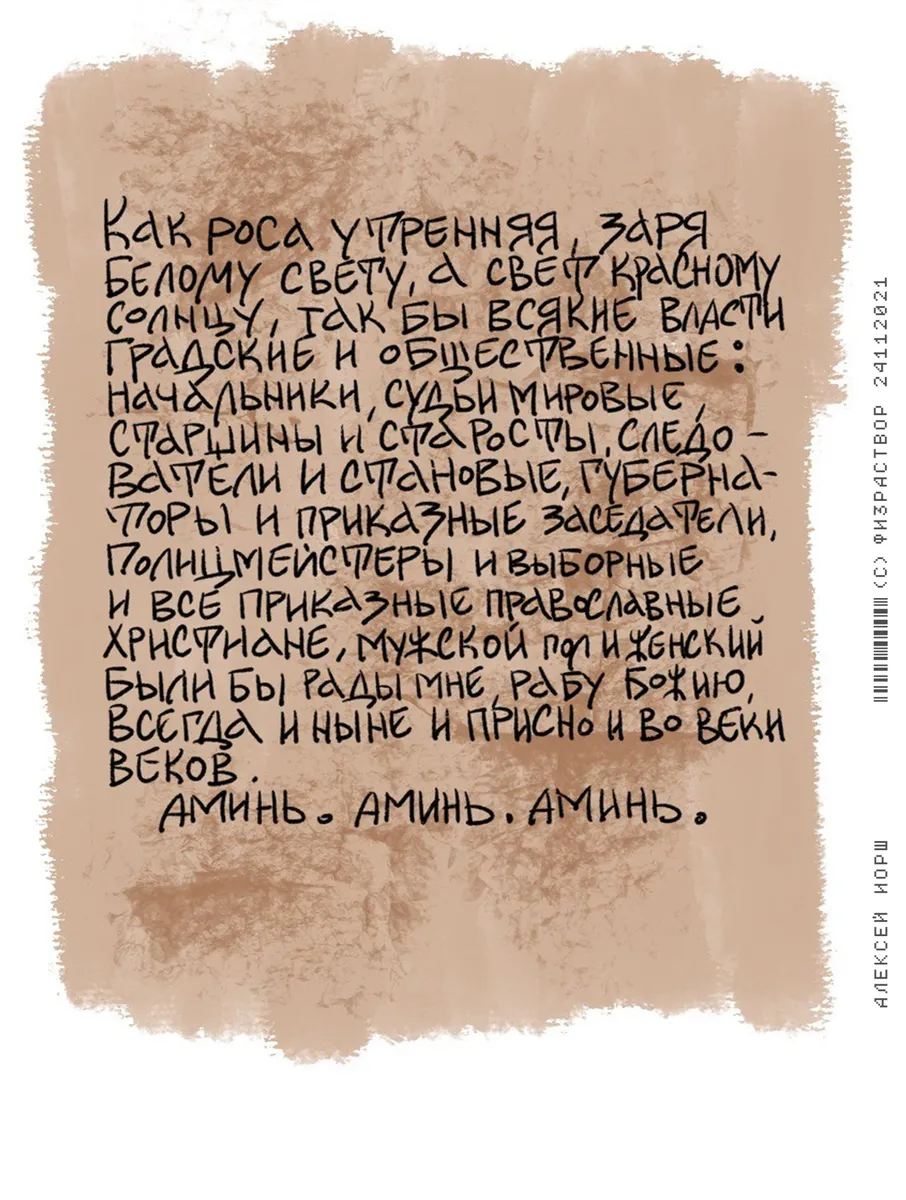 Как роса утренняя, заря
белому свету, а свет красному
солнцу, так бы всякие власти
градские и общественные:
начальники, судьи мировые,
старшины и старосты, следо-
ватели и становые, губерна-
торы и приказные заседатели,
полицмейстеры и выборные
и все приказные православные
христиане, мужской пол и женский
были бы рады мне, рабу божию,
всегда и ныне и присно и во веки
веков.
Аминь. Аминь. Аминь.
(C) ФИЗРАСТВОР 24112021
АЛЕКСЕЙ ИОРШ